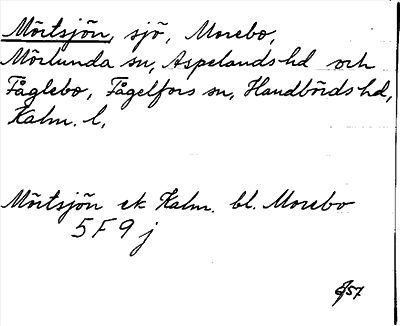 Mörtsjön, sjö, Morebo,
Mörlunda sn, Aspelands hd och
Fåglebo, Fågelfors sn, Handbörds hd,
Kalm. l,
Mörtsjön ek Kalm. bl. Morebo
5F9j